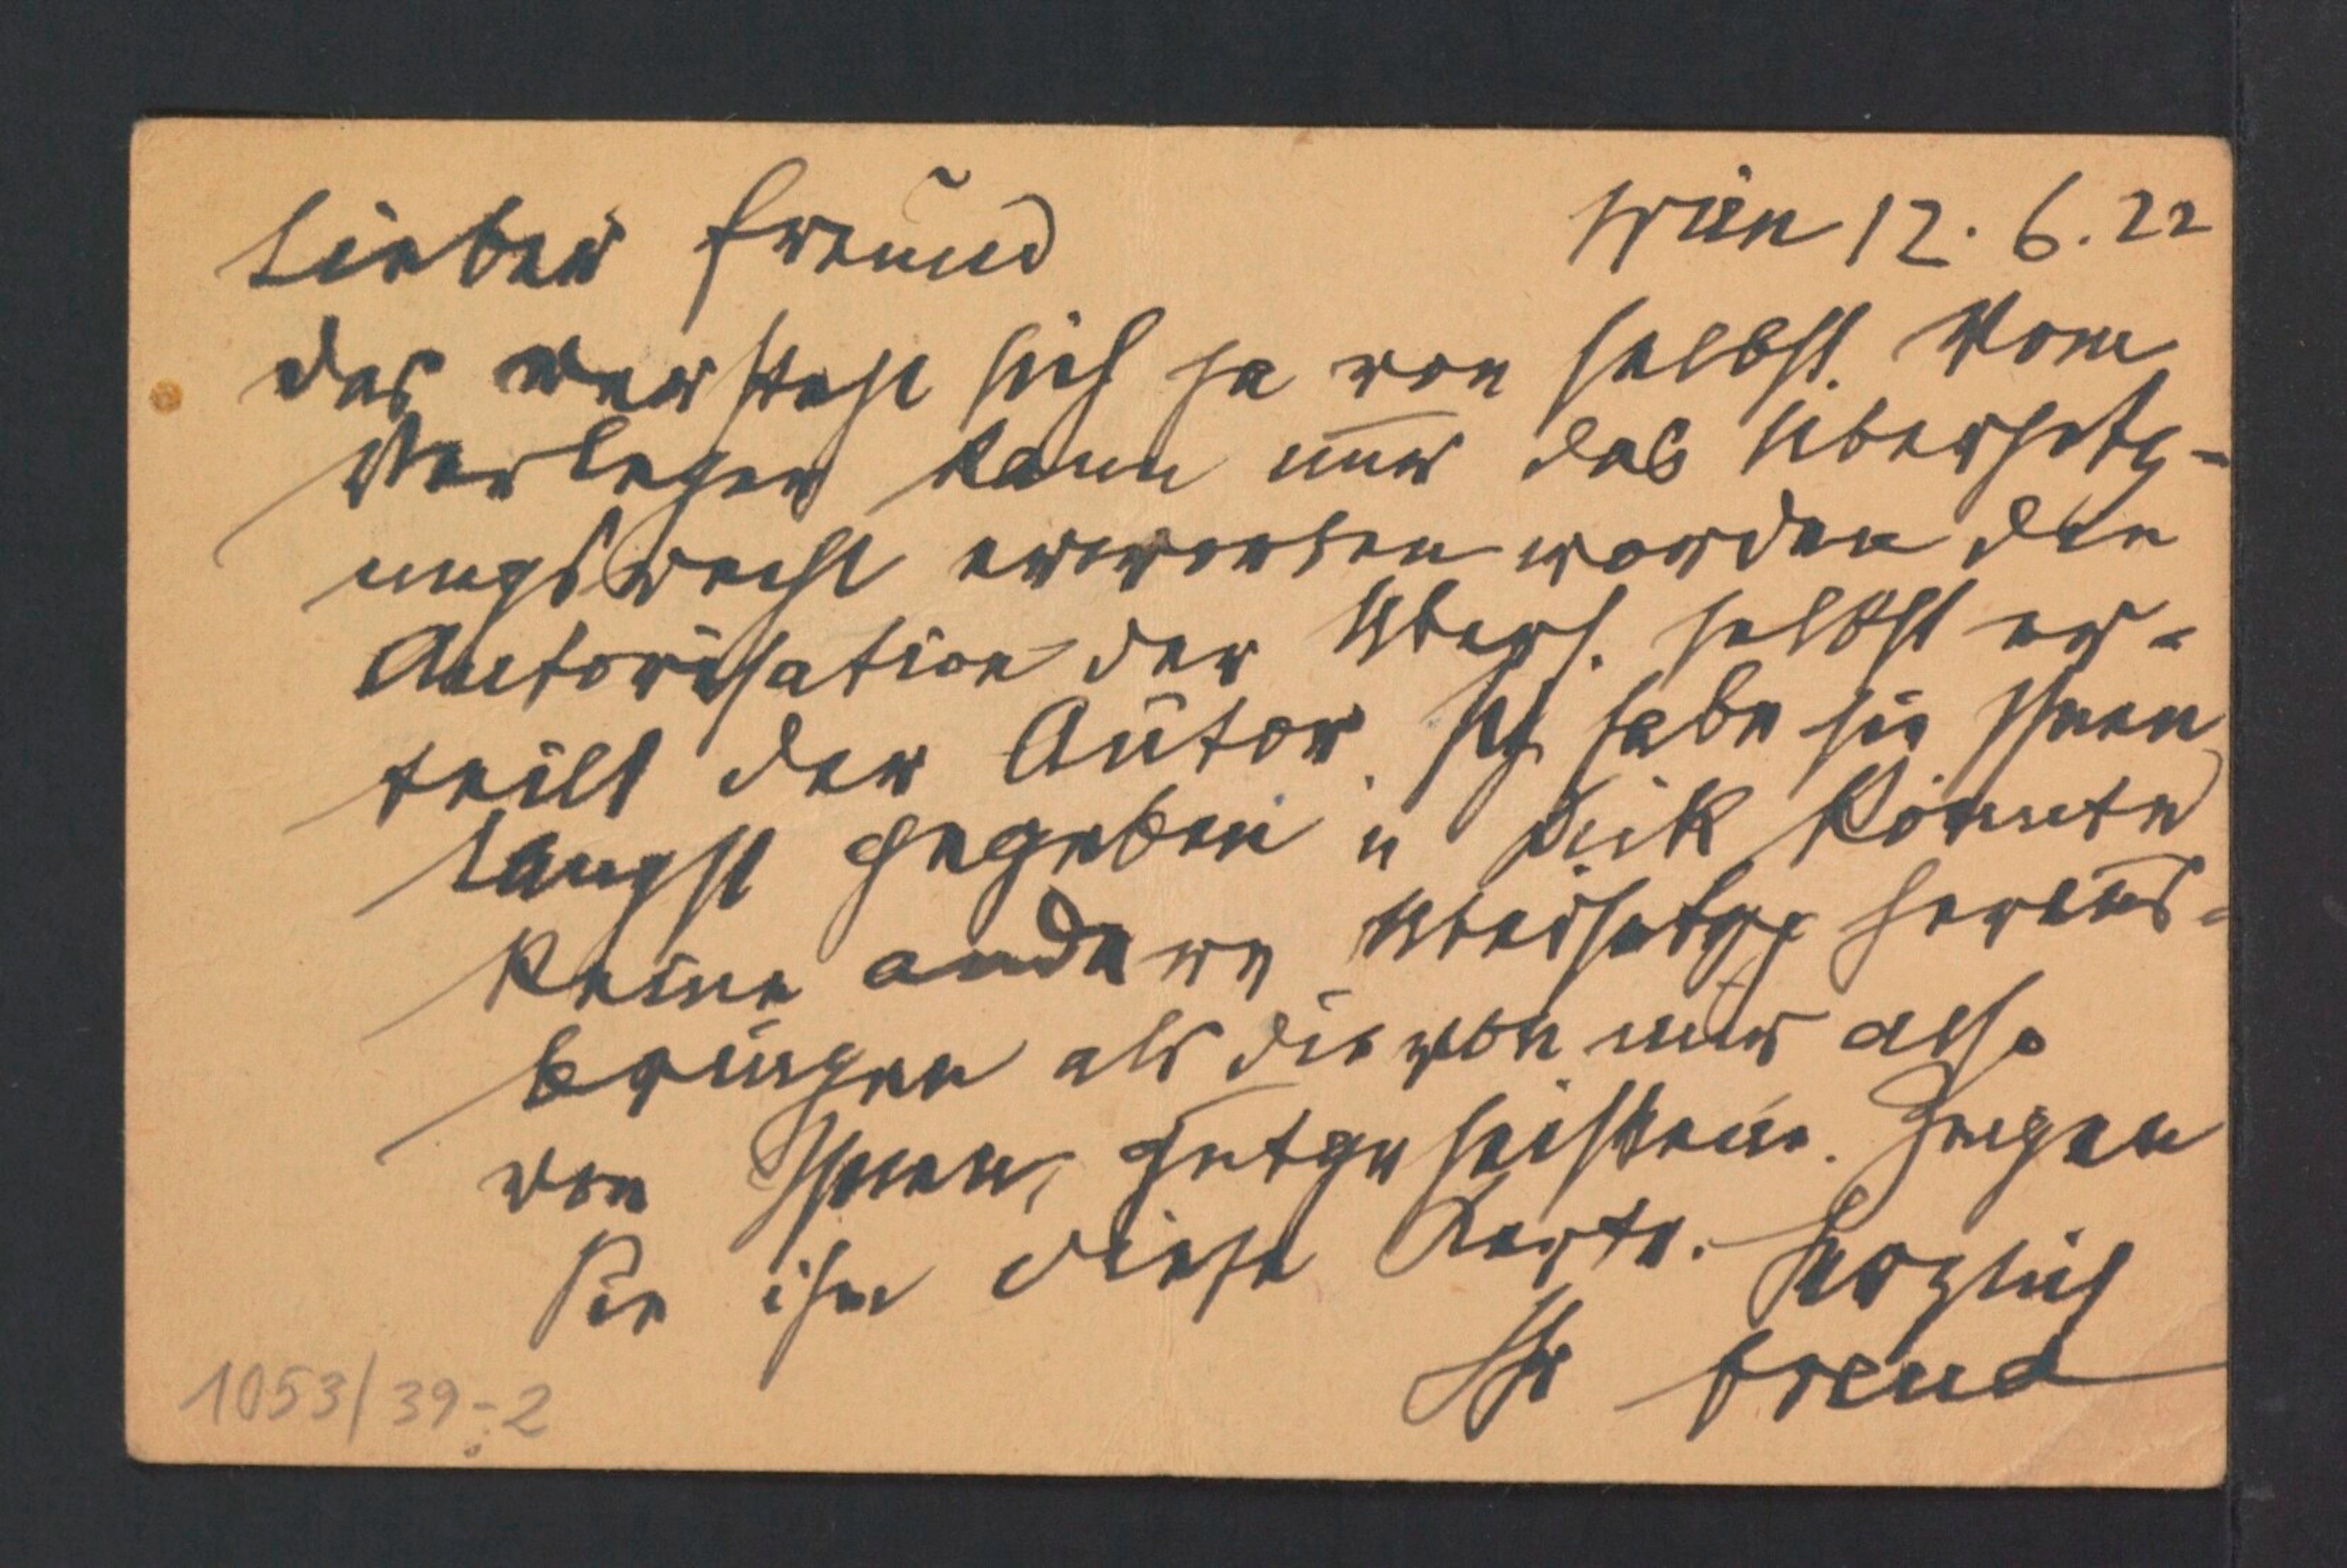 Lieber Freund
Wien 12. 6. 22
das versteht sich ja von selbst. Vom
Verleger kann nur das Übersetz-
ungsrecht erworben werden die
Autorisation der Übers. selbst er-
teilt der Autor. Ich habe sie Ihnen
längst gegeben u Dick könnte
keine andere Übersetzg heraus-
bringen als die von mir also
von Ihnen, gutgeheißene. Zeigen
Sie ihm diese Karte. Herzlich
Ihr Freud
1053/39-2